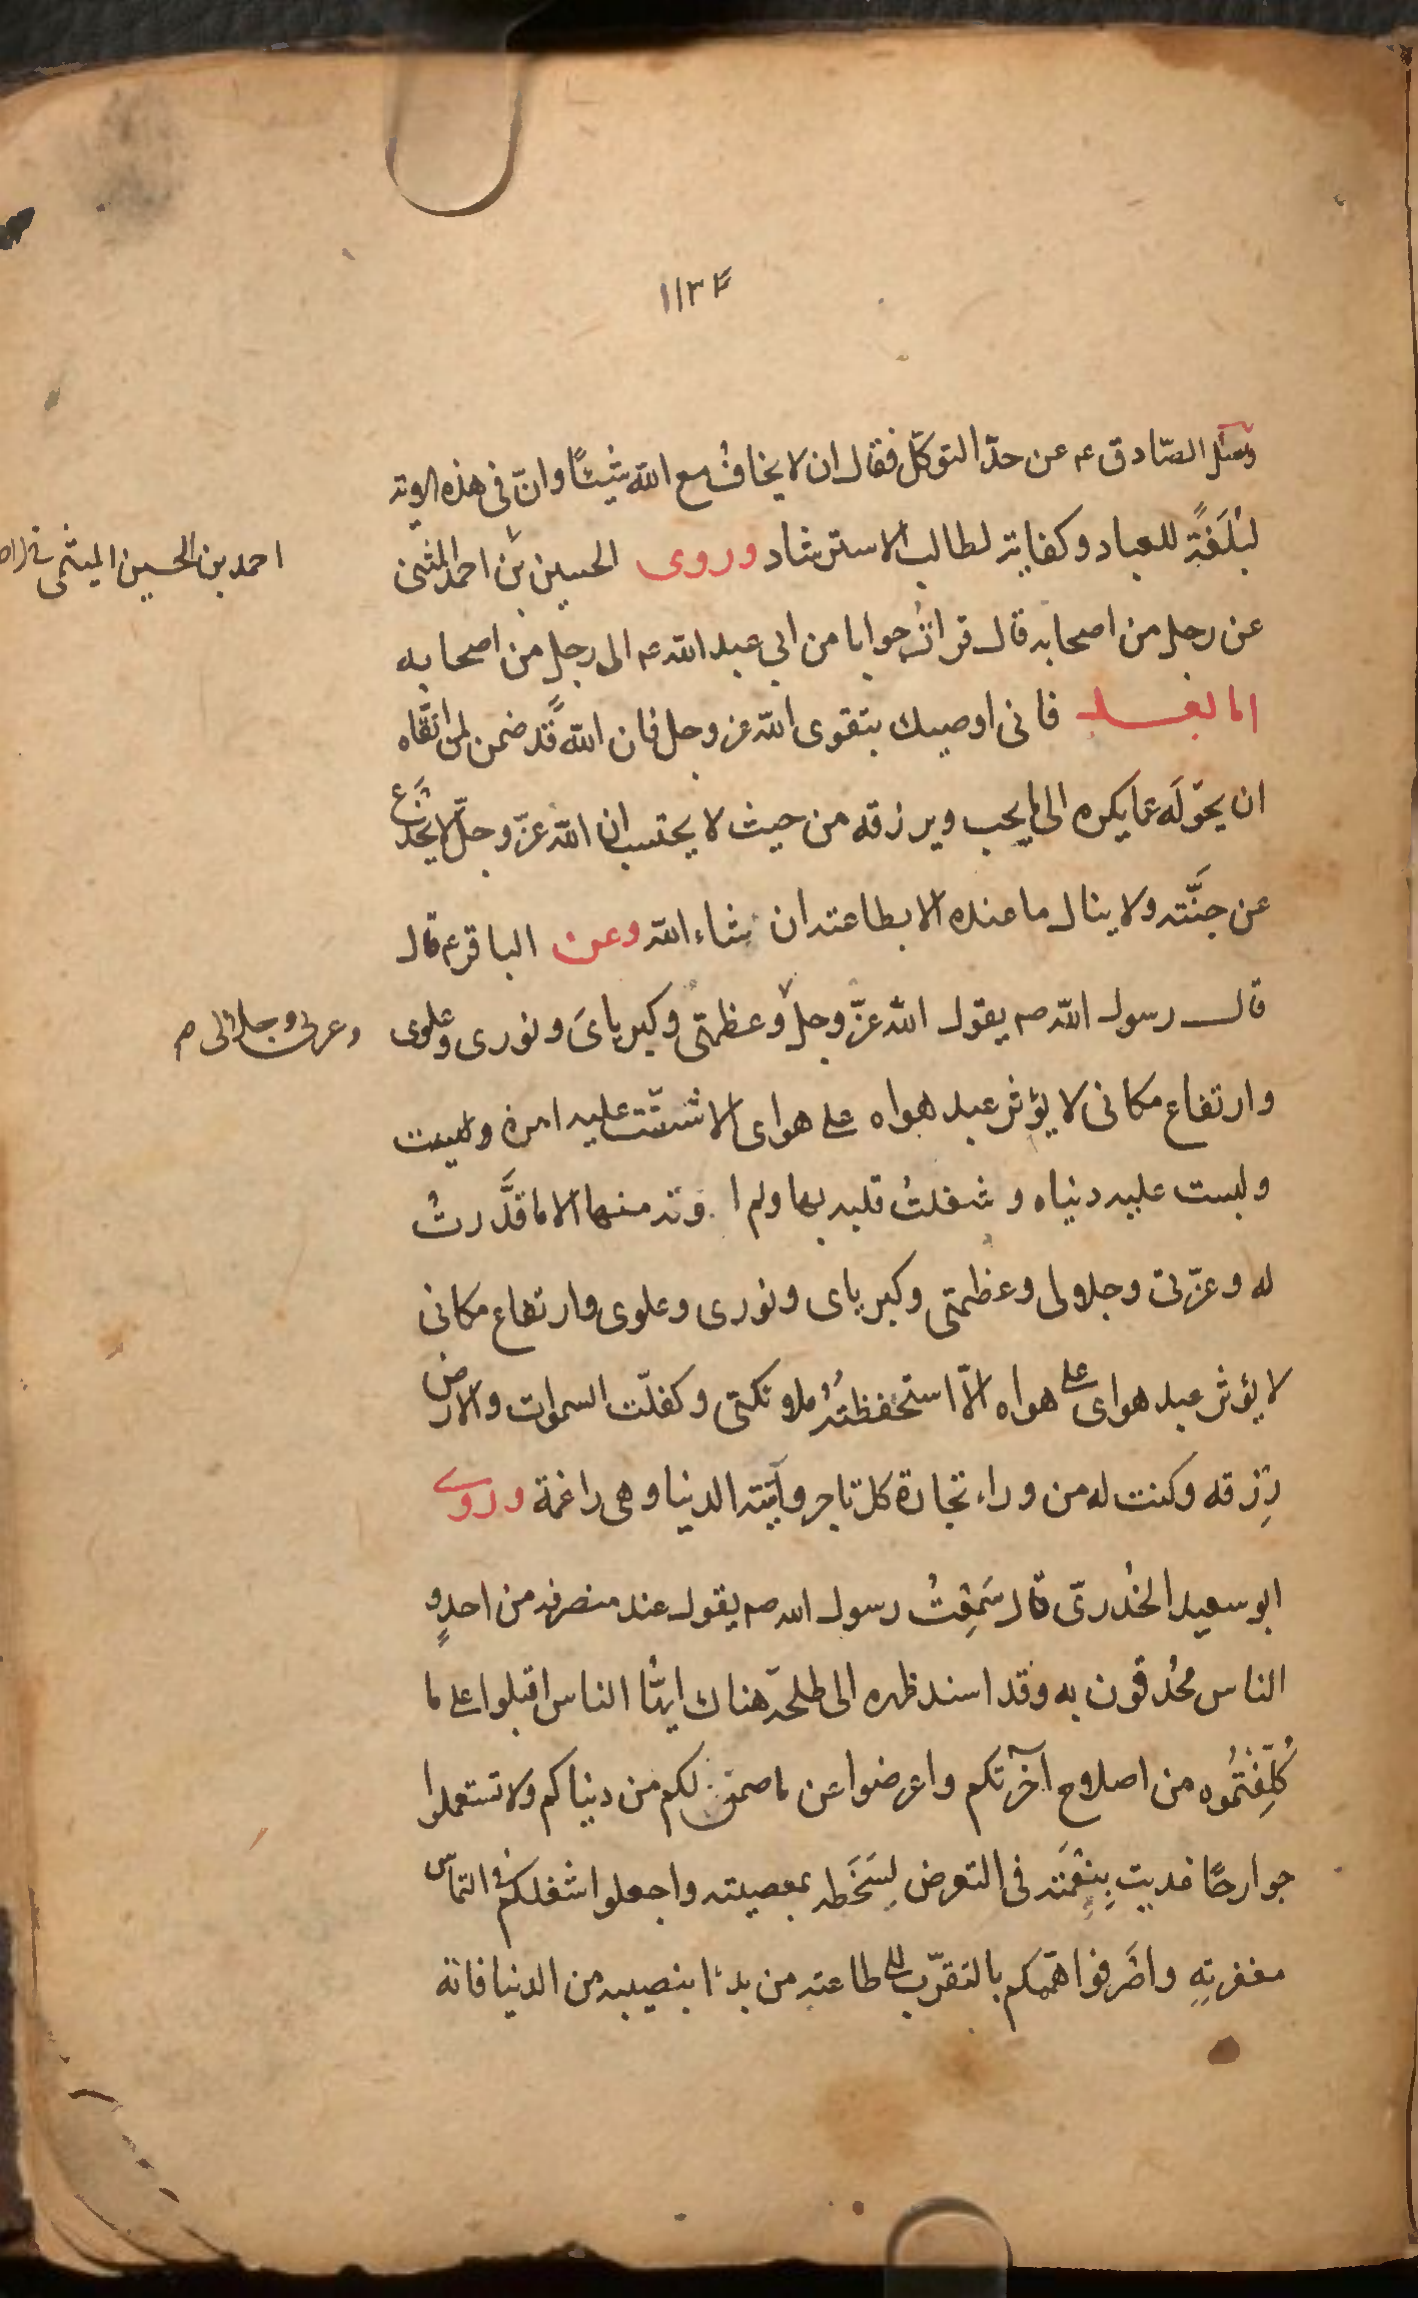 ١١٣٤
وسئل الصّادق ع عن حدّ التوكّل فقال ان لا يخافُ مع الله شيئًا وانّ فى هذه
لبُلَغةً للعباد وكفاية لطالب الاسترشاد وروى الحسين بن احمد المثنى
احمد بن الحسين الميثمى
عن رجل من اصحابه قال قرأتُ جوابا من ابي عبد الله ع الى رجل من اصحابه
اما بعد فانى اوصيك بتقوى الله عز وجل فان الله قد ضمن لمن اتّقاه
ان يحوّلَه عما يكره الى ما يحب ويرزقه من حيث لا يحتسب ان الله عزّ وجلّ لا يخدَع
عن جنَّته ولا ينال ما عنده الا بطاعته ان شاء الله وعن الباقر ع قال
قال رسول الله ص يقول الله عزّ وجل وعظمتى وكبرياىَ ونورى وعلوى
وعزتى وجلالى م
وارتفاع مكانى لا يؤثر عبد هواه على هواى الا شتّت عليه امره ولبست
ولبست عليه دنياه وشغلتُ قلبه بها ولم اوته منها الا ما قدَّرتُ
له وعزّتى وجلالى وعظمتى وكبرياى ونورى وعلوى وارتفاع مكانى
لا يؤثر عبد هواى على هواه الّا استحفظتُه ملائكتى وكفلّت السموات والارض
رِزقه وكنت له من وراء تجارة كل تاجر وآتيته الدنيا وهى راغمة وروى
ابو سعيد الخُدرىّ قال سَمِعْتُ رسول الله ص يقول عند منصرفه من احدٍ و
الناس محُدقون به وقد اسند ظهره الى طلحة هناك ايهّا الناس اقبلوا على ما
كُلِّفْتُموه من اصلاح آخرتكم واعرضوا عن ما ضمن لكم من دنياكم ولا تستعملوا
جوارحًا غذيت بِنِعْمَته فى التعرض لِسَخَطه بمعصيته واجعلوا شغلكم فى التماس
مغفرتِهِ واصَرفوا همّكم بالتقرّب الى طاعته من بدأ بنصيبه من الدنيا فانه